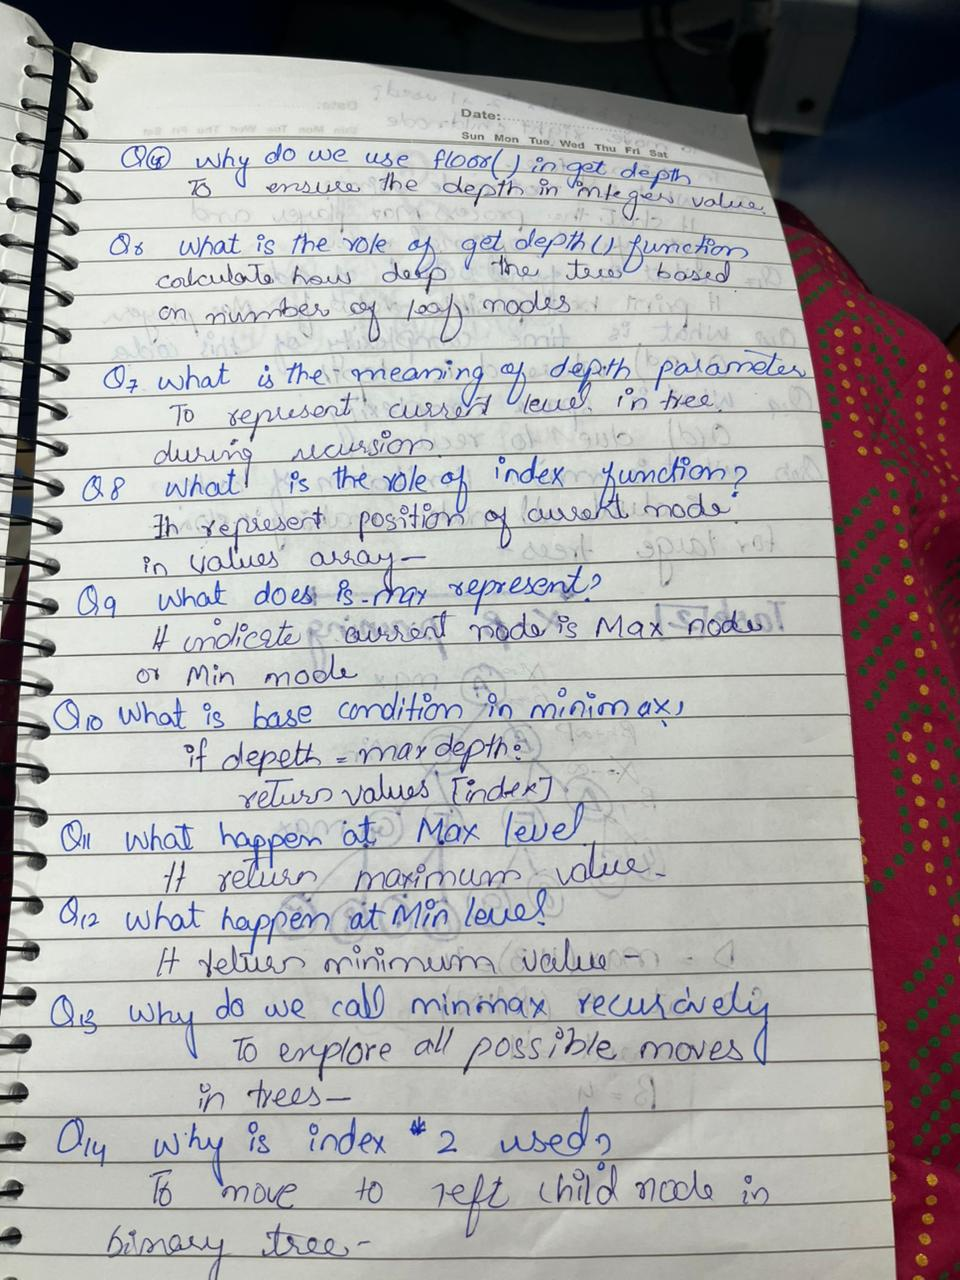 Date:
Sun Mon Tue Wed Thu Fri Sat
Q5 Why do we use floor() in get depth
To ensure the depth in integer value.
Q6 What is the role of get depth() function
calculate how deep the tree based
on number of leaf nodes
Q7 What is the meaning of depth parameter
To represent current level in tree
during recursion.
Q8 What is the role of index function?
It represent position of current node
in values array-
Q9 What does is-max represent?
It indicate current node is Max node
or Min node
Q10 What is base condition in minimax,
if depeth = max depth:
return values [index]
Q11 What happen at Max level
It return maximum value-
Q12 What happen at Min level?
It return minimum value-
Q13 Why do we call minmax recursively
To explore all possible moves
in trees-
Q14 Why is index * 2 used?
To move to left child node in
binary tree-